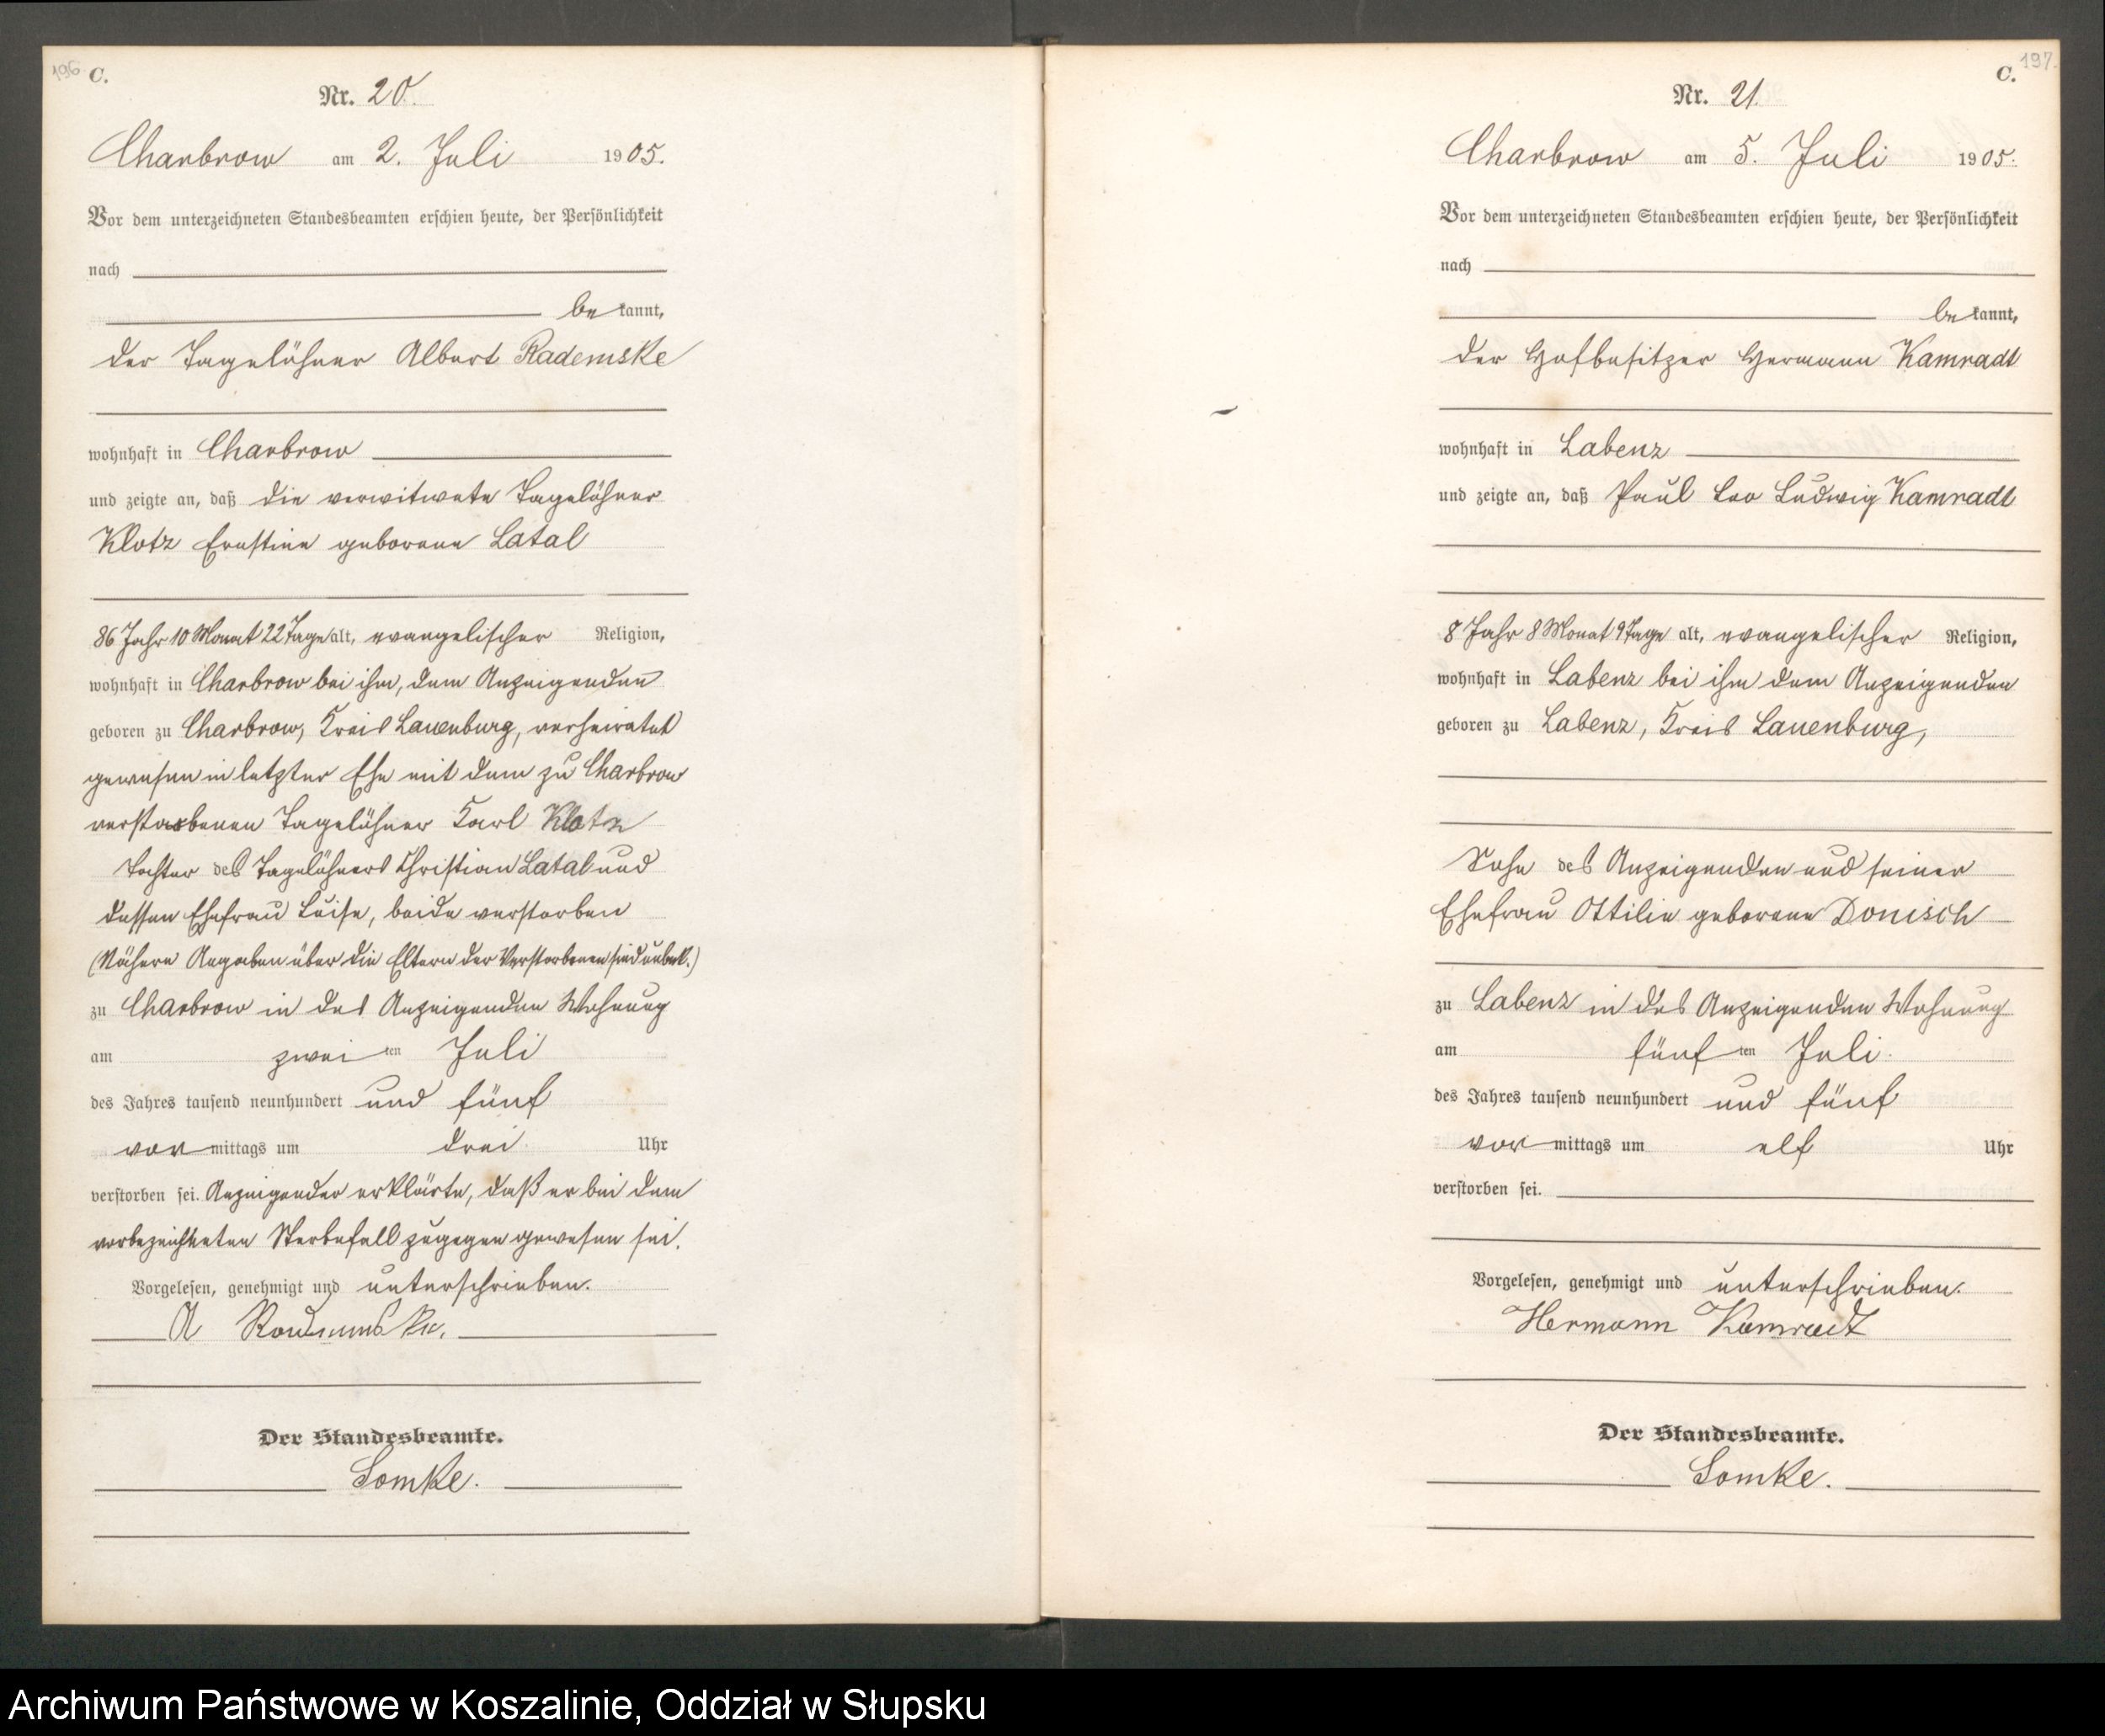 196 C.
Nr. 20.
Charbrow am 2. Juli 1905.
Vor dem unterzeichneten Standesbeamten erschien heute, der Persönlichkeit
nach
be kannt,
der Tagelöhner Albert Rademske
wohnhaft in Charbrow
und zeigte an, daß die verwitwete Tagelöhner
Klotz Ernstine geborene Latal
86 Jahr 10 Monat 22 Tage alt, evangelischer Religion,
wohnhaft in Charbrow bei ihm, dem Anzeigenden
geboren zu Charbrow, Kreis Lauenburg, verheiratet
gewesen in letzter Ehe mit dem zu Charbrow
verstorbenen Tagelöhner Karl Klotz
Tochter des Tagelöhners Christian Latal und
dessen Ehefrau Luise, beide verstorben
(Nähere Angaben über die Eltern der Verstorbenen sind unbek.)
zu Charbrow in des Anzeigenden Wohnung
am zwei ten Juli
des Jahres tausend neunhundert und fünf
vor mittags um drei Uhr
verstorben sei. Anzeigender erklärte, daß er bei dem
vorbezeichneten Sterbefall zugegen gewesen sei.
Vorgelesen, genehmigt und unterschrieben.
A
Der Standesbeamte.
Somke.
197. C.
Nr. 21.
Charbrow am 5. Juli 1905.
Vor dem unterzeichneten Standesbeamten erschien heute, der Persönlichkeit
nach
be kannt,
der Hofbesitzer Hermann Kamradt
wohnhaft in Labenz
und zeigte an, daß Paul Leo Ludwig Kamradt
8 Jahr 8 Monat 9 Tage alt, evangelischer Religion,
wohnhaft in Labenz bei ihm dem Anzeigenden
geboren zu Labenz, Kreis Lauenburg,
Sohn des Anzeigenden und seiner
Ehefrau Ottilie geborene Donisch
zu Labenz in des Anzeigenden Wohnung
am fünf ten Juli.
des Jahres tausend neunhundert und fünf
vor mittags um elf Uhr
verstorben sei.
Vorgelesen, genehmigt und unterschrieben.
Hermann Kamradt
Der Standesbeamte.
Somke.
Archiwum Państwowe w Koszalinie, Oddział w Słupsku